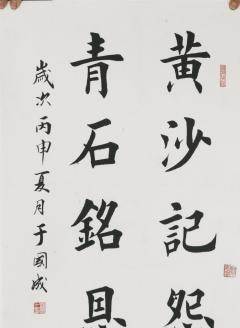 黄沙記怨
青石銘恩
歲次丙申夏月于國成